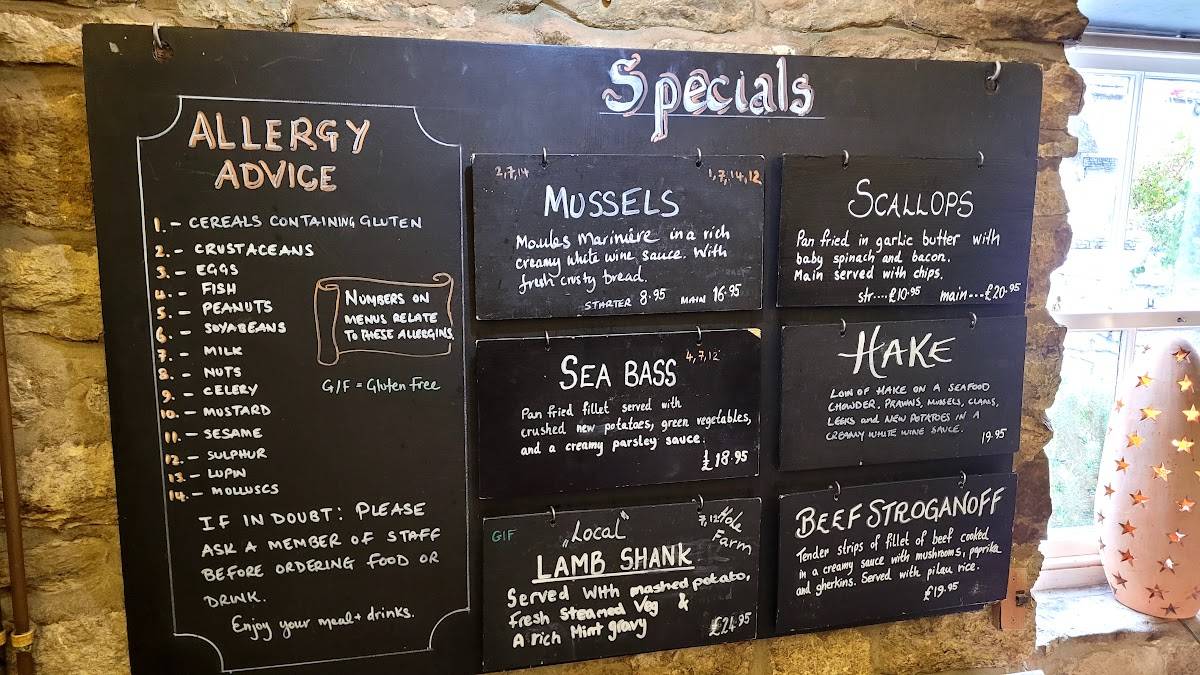 Specials
ALLERGY
ADVICE
1. - CEREALS CONTAINING GLUTEN
2. - CRUSTACEANS
3. - EGGS
4. - FISH
5. - PEANUTS
6. - SOYABEANS
7. - MILK
8. - NUTS
9. - CELERY
10. - MUSTARD
11. - SESAME
12. - SULPHUR
13. - LUPIN
14. - MOLLUSCS
NUMBERS ON
MENUS RELATE
TO THESE ALLERGINS.
G/F = Gluten Free
IF IN DOUBT: PLEASE
ASK A MEMBER OF STAFF
BEFORE ORDERING FOOD OR
DRINK.
Enjoy your meal + drinks.
2,7,14 1,7,14,12
MUSSELS
Moules Marinière in a rich
creamy white wine sauce. With
fresh crusty bread.
STARTER 8.95 MAIN 16.95
SCALLOPS
Pan fried in garlic butter with
baby spinach and bacon.
Main served with chips.
str....£10.95 main...£20.95
4,7,12
SEA BASS
Pan fried fillet served with
crushed new potatoes, green vegetables,
and a creamy parsley sauce.
£18.95
HAKE
LOIN OF HAKE ON A SEAFOOD
CHOWDER, PRAWNS, MUSSELS, CLAMS,
LEEKS and NEW POTATOES IN A
CREAMY WHITE WINE SAUCE. 19.95
G/F „Local" 7,12 Hole
Farm
LAMB SHANK
Served With mashed potato,
fresh Steamed Veg &
A rich Mint gravy
£24.95
BEEF STROGANOFF
Tender strips of fillet of beef cooked
in a creamy sauce with mushrooms, paprika
and gherkins. Served with pilau rice.
£19.95